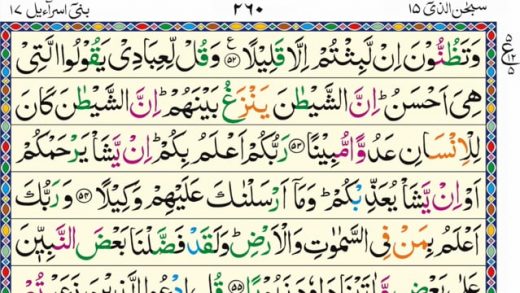 سبحٰن الذی ١٥ ٢٦٠ بنیٓ اسرآءیل ١٧
وَتَظُنُّوۡنَ اِنۡ لَّبِثۡتُمۡ اِلَّا قَلِيۡلًا ﴿٥٢﴾ وَقُلْ لِّعِبَادِىۡ يَقُوۡلُوا الَّتِىۡ
هِىَ اَحۡسَنُ‌ؕ اِنَّ الشَّيۡطٰنَ يَنۡزَغُ بَيۡنَهُمۡ‌ؕ اِنَّ الشَّيۡطٰنَ كَانَ
لِلۡاِنۡسَانِ عَدُوًّا مُّبِيۡنًا ﴿٥٣﴾ رَبُّكُمۡ اَعۡلَمُ بِكُمۡ‌ؕ اِنۡ يَّشَاۡ يَرۡحَمۡكُمۡ
اَوۡ اِنۡ يَّشَاۡ يُعَذِّبۡكُمۡ‌ؕ وَمَاۤ اَرۡسَلۡنٰكَ عَلَيۡهِمۡ وَكِيۡلًا ﴿٥٤﴾ وَرَبُّكَ
اَعۡلَمُ بِمَنۡ فِى السَّمٰوٰتِ وَالۡاَرۡضِ‌ؕ وَلَقَدۡ فَضَّلۡنَا بَعۡضَ النَّبِيّٖنَ